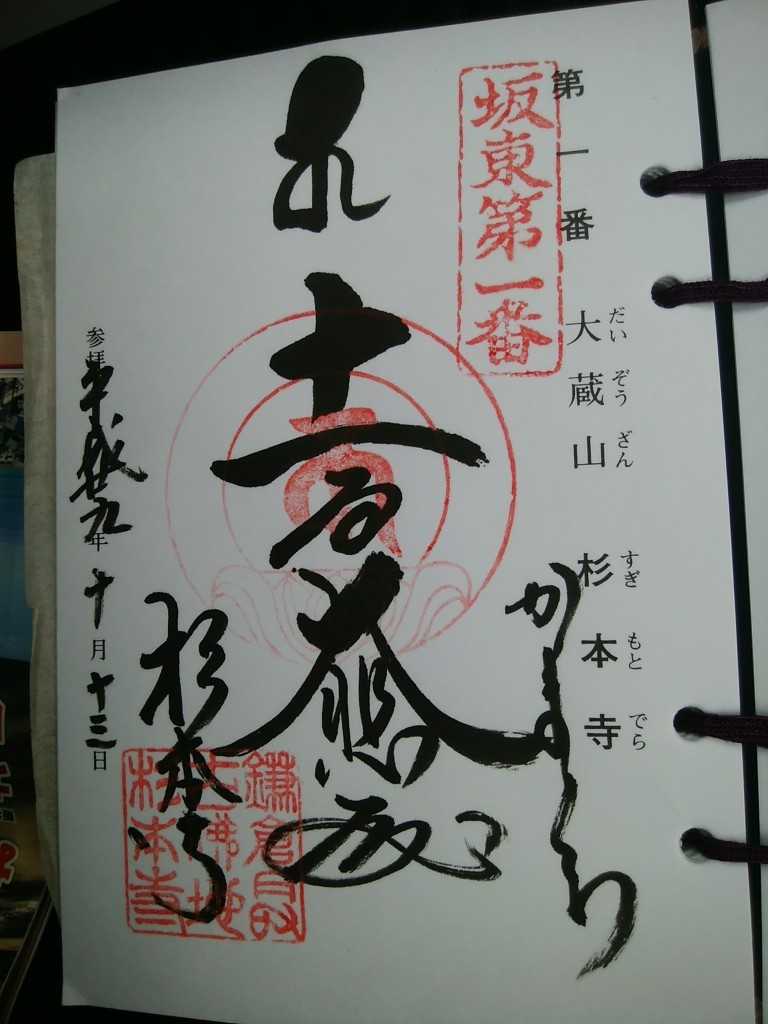 第一番 大蔵山 杉本寺
だいぞうざん すぎもとでら
坂東第一番
かまくら
十一面大悲殿
杉本寺
鎌倉最
古佛地
杉本寺
参拝 平成廿九年十月十三日